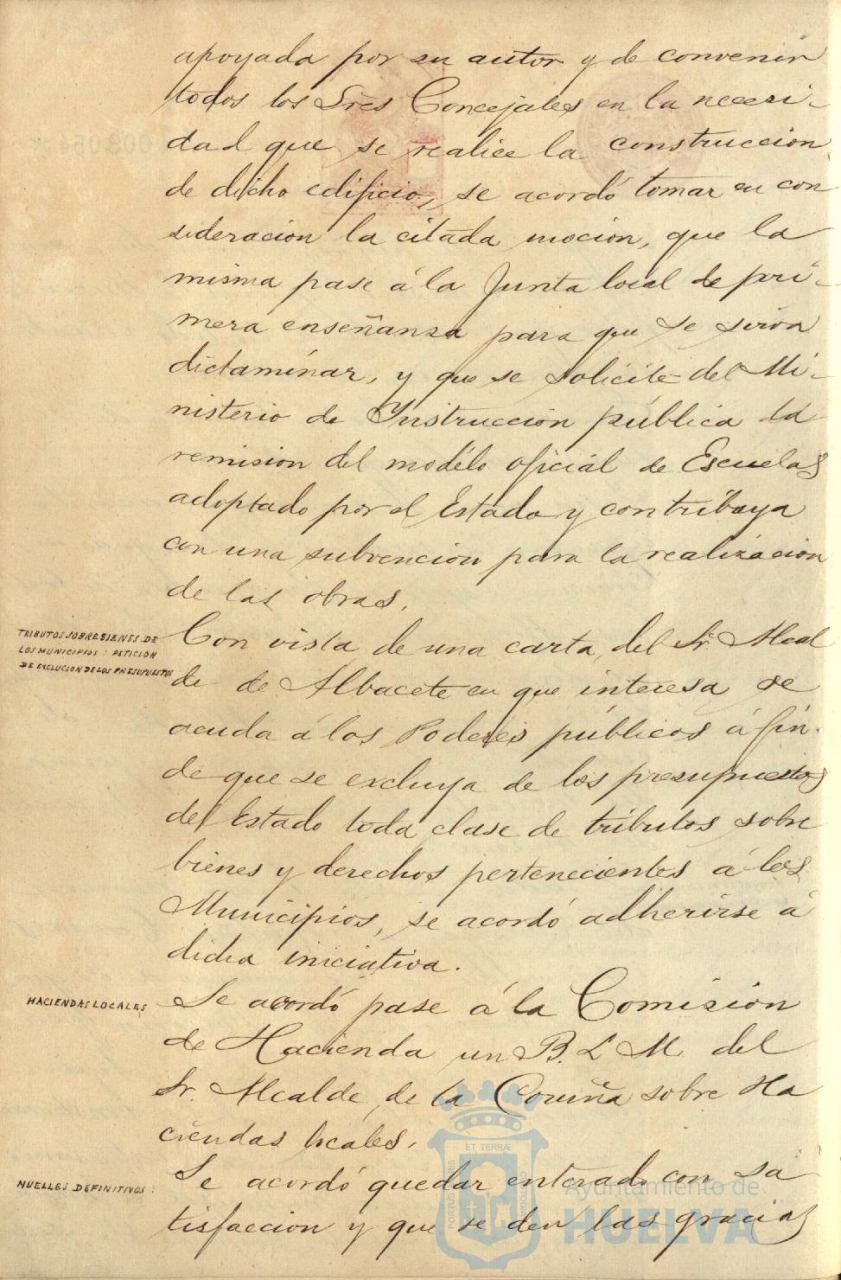 apoyada por su autor y de convenir
todos los Sres Concejales en la necesi-
dad que se realice la construccion
de dicho edificio, se acordó tomar en con
sideracion la citada moción, que la
misma pase á la Junta local de pri-
mera enseñanza para que se sirva
dictaminar, y que se solicite del Mi-
nisterio de Instrucción pública la
remision del modélo oficial de Escuelas
adoptado por el Estado y contribuya
con una subvencion para la realizacion
de las obras.
TRIBUTOS SOBRE BIENES DE
LOS MUNICIPIOS: PETICION
DE EXCLUCION DE LOS PRESUPUESTOS
Con vista de una carta, del Sr. Alcal
de de Albacete en que interesa se
acuda á los Poderes públicos á fin
de que se excluya de los presupuestos
del Estado toda clase de tributos sobre
bienes y derechos pertenecientes á los
Municipios, se acordó adherirse á
dicha iniciativa.
HACIENDAS LOCALES
Se acordó pase á la Comisión
de Hacienda un B. L. M. del
Sr. Alcalde, de la Coruña sobre Ha
ciendas locales.
MUELLES DEFINITIVOS:
Se acordó quedar enterado con sa
tisfaccion y que se den las gracias
ET TERRÆ
PORTUS
CUSTODIA
Ayuntamiento de
HUELVA